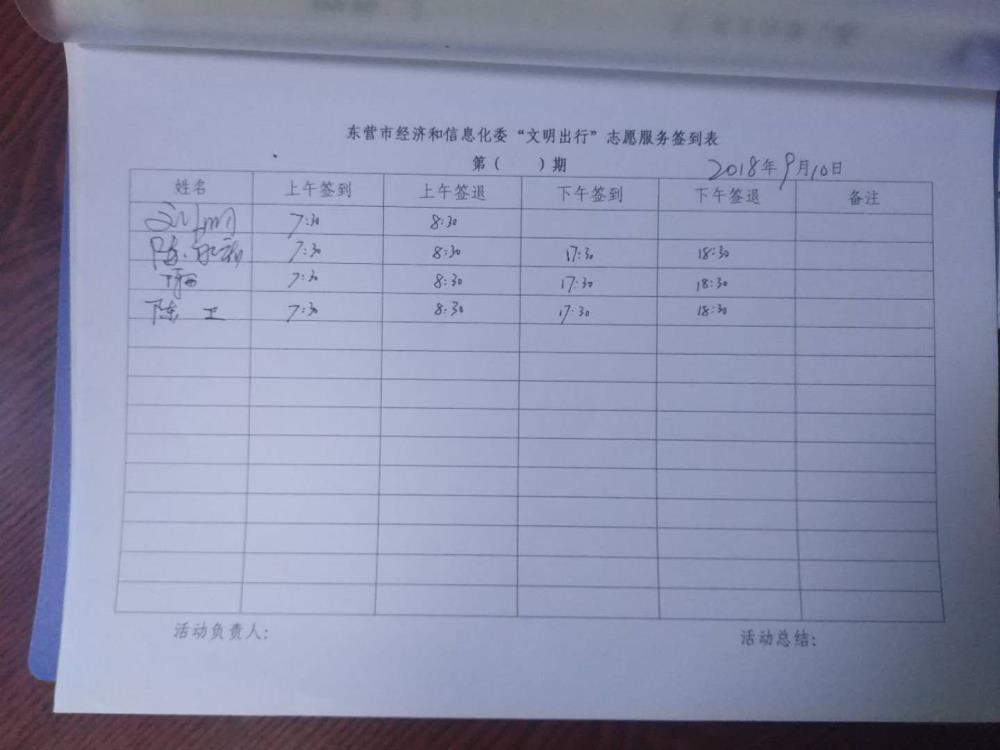 东营市经济和信息化委“文明出行”志愿服务签到表
第（ ）期 2018年9月10日
姓名 上午签到 上午签退 下午签到 下午签退 备注
7:30 8:30
陈 7:30 8:30 17:30 18:30
7:30 8:30 17:30 18:30
陈卫 7:30 8:30 17:30 18:30
活动负责人： 活动总结：